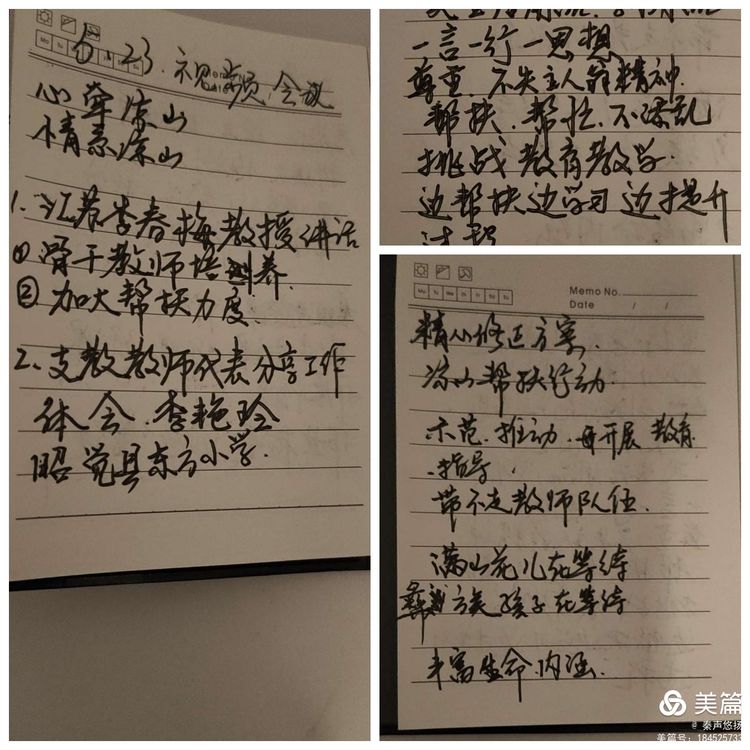 6.23.视频会议
心牵凉山
情意凉山
1.江苏李春梅教授讲话
①骨干教师培养.
②加大帮扶力度.
2.支教教师代表分享工作
体会.李艳玲
昭觉县东方小学.
一言一行一思想
尊重.不失主人翁精神.
帮扶.帮忙.不添乱
挑战教育教学.
边帮扶边学习边提升
Memo No.
Date / /
Mo Tu We Th Fr Sa Su
精心修正方案.
凉山帮扶行动.
示范.推动.开展教育
指导.
带不走教师队伍.
满山花儿在等待
彝族孩子在等待
丰富生命内涵.
美篇
@ 秦声悠扬
美篇号：184525733